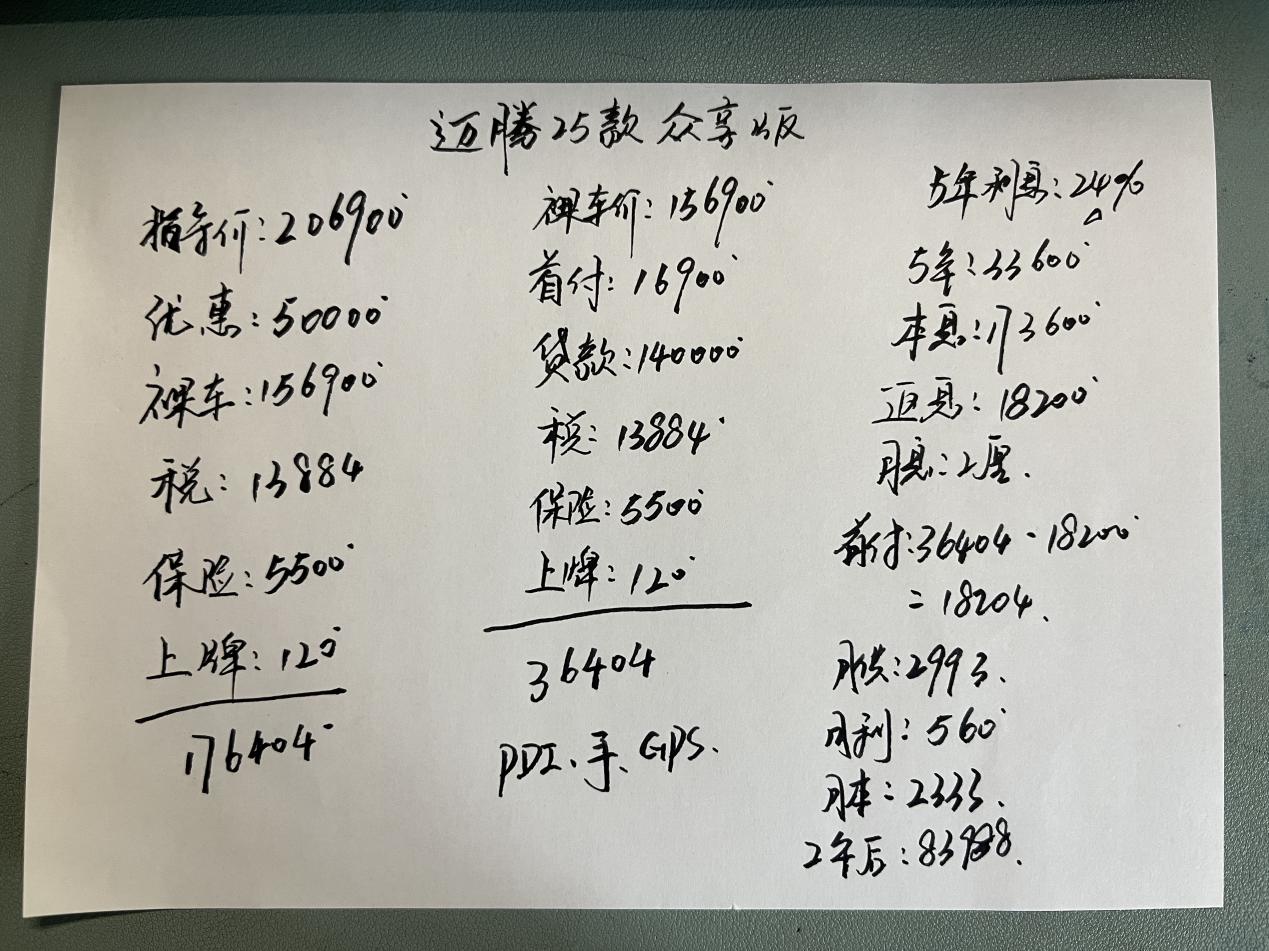 迈腾25款 众享版
指导价:206900
优惠:50000
裸车:156900
税:13884
保险:5500
上牌:120
176404
裸车价:156900
首付:16900
贷款:140000
税:13884
保险:5500
上牌:120
36404
PDI、手、GPS.
5年利息:24%
5年:33600
本息:173600
返息:18200
月息:2厘.
首付:36404-18200
=18204.
月供:2993.
月利:560
月本:2333.
2年后:83988.